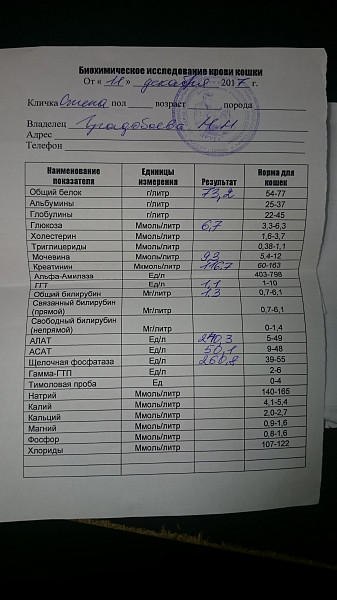 Биохимическое исследование крови кошки
От « 11 » декабря 2017 г.
Кличка пол ___ возраст ___ порода
Владелец Н.Н
Адрес
Телефон
Наименование показателя Единицы измерения Результат Норма для кошек
Общий белок г/литр 73,2 54-77
Альбумины г/литр 25-37
Глобулины г/литр 22-45
Глюкоза Ммоль/литр 6,7 3,3-6,3
Холестерин Ммоль/литр 1,6-3,7
Триглицериды Ммоль/литр 0,38-1,1
Мочевина Ммоль/литр 9,3 5,4-12
Креатинин Мкмоль/литр 116,7 60-163
Альфа-Амилаза Ед/л 403-798
ГГТ Ед/л 1,1 1-10
Общий билирубин Мг/литр 1,3 0,7-6,1
Связанный билирубин (прямой) Мг/литр 0,7-6,1
Свободный билирубин (непрямой) Мг/литр 0-1,4
АЛАТ Ед/л 240,3 5-49
АСАТ Ед/л 50,1 9-48
Щелочная фосфатаза Ед/л 260,8 39-55
Гамма-ГТП Ед/л 2-6
Тимоловая проба Ед 0-4
Натрий Ммоль/литр 140-165
Калий Ммоль/литр 4,1-5,4
Кальций Ммоль/литр 2,0-2,7
Магний Ммоль/литр 0,9-1,6
Фосфор Ммоль/литр 0,8-1,6
Хлориды Ммоль/литр 107-122